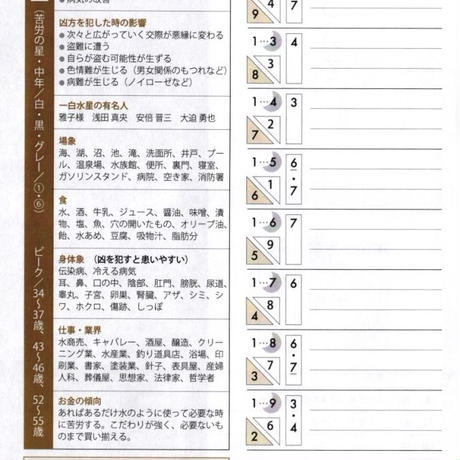 ● 病気の改善
凶方を犯した時の影響
● 次々と広がっていく交際が悪縁に変わる
● 盗難に遭う
● 自らが盗む可能性が生ずる
● 色情難が生じる（男女関係のもつれなど）
● 病難が生じる（ノイローゼなど）
一白水星の有名人
雅子様　浅田真央　安倍晋三　大迫勇也
場象
海、湖、沼、池、滝、洗面所、井戸、プー
ル、温泉場、水族館、便所、裏門、寝室、
ガソリンスタンド、病院、空き家、消防署
食
水、酒、牛乳、ジュース、醤油、味噌、漬
物、塩、魚、穴の開いたもの、オリーブ油、
飴、水あめ、豆腐、吸物汁、脂肪分
身体象（凶を犯すと患いやすい）
伝染病、冷える病気
耳、鼻、口の中、陰部、肛門、膀胱、尿道、
睾丸、子宮、卵巣、腎臓、アザ、シミ、シ
ワ、ホクロ、傷跡、しっぽ
仕事・業界
水商売、キャバレー、酒屋、醸造、クリー
ニング業、水産業、釣り道具店、浴場、印
刷業、書家、塗装業、針子、表具屋、産婦
人科、葬儀屋、思想家、法律家、哲学者
お金の傾向
あればあるだけ水のように使って必要な時
に苦労する。こだわりが強く、必要ないも
のまで買い揃える。
（苦労の星・中年／白・黒・グレー／①⑥）
ピーク／34～37歳、43～46歳、52～55歳
4
9
7
1…3
8
4
1…4
7
2
3
1…5
6
1
6・7
1…6
9
5
7
1…7
8
4
6
1…8
3
7
6・7
1…9
6
2
3・4